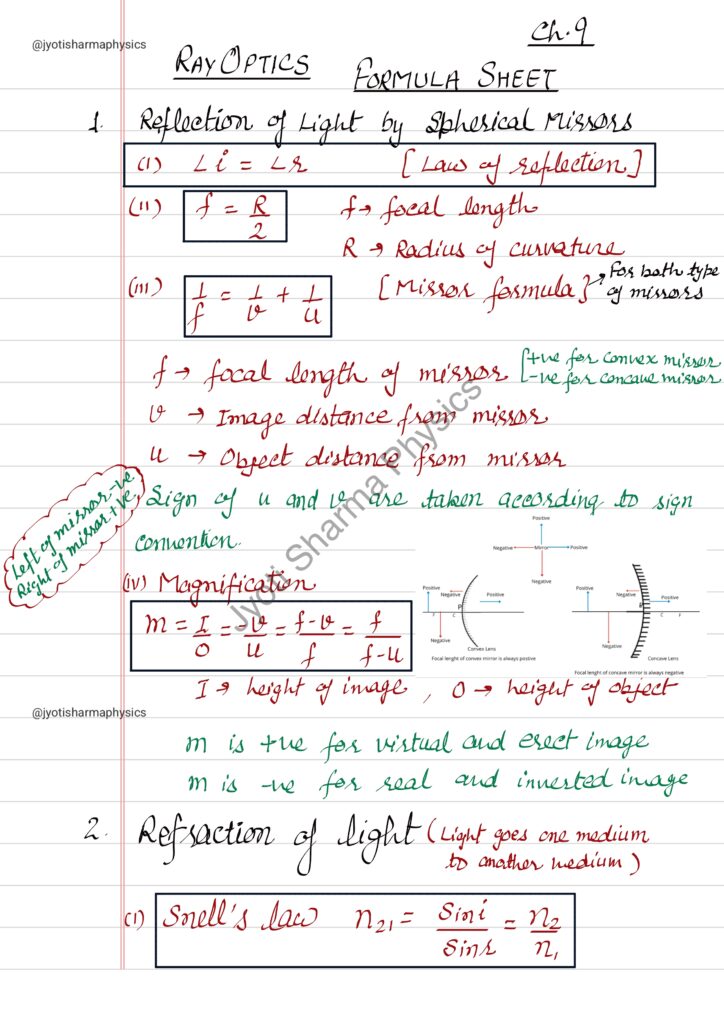 @jyotisharmaphysics
Ch.9
RAY OPTICS FORMULA SHEET
1. Reflection of Light by Spherical Mirrors
(I) ∠i = ∠r [Law of reflection]
(II) f = R/2 f → focal length
R → Radius of curvature
(III) 1/f = 1/v + 1/u [Mirror formula] → For both type of mirrors
f → focal length of mirror [+ve for convex mirror
-ve for concave mirror
v → Image distance from mirror
u → Object distance from mirror
Left of mirror -ve
Right of mirror +ve
Sign of u and v are taken according to sign
convention.
Positive
Negative Mirror Positive
Negative
(IV) Magnification
m = I/O = -v/u = f-v/f = f/f-u
Positive
Negative
Positive
P
F C
Negative
Convex Lens
Focal lenght of convex mirror is always postive
Positive
Negative
Positive
P
C F
Negative
Concave Lens
Focal lenght of concave mirror is always negative
I → height of image, O → height of object
@jyotisharmaphysics
m is +ve for virtual and erect image
m is -ve for real and inverted image
2. Refraction of light (Light goes one medium
to another medium)
(I) Snell's law n₂₁ = sini/sinr = n₂/n₁
Jyoti Sharma Physics